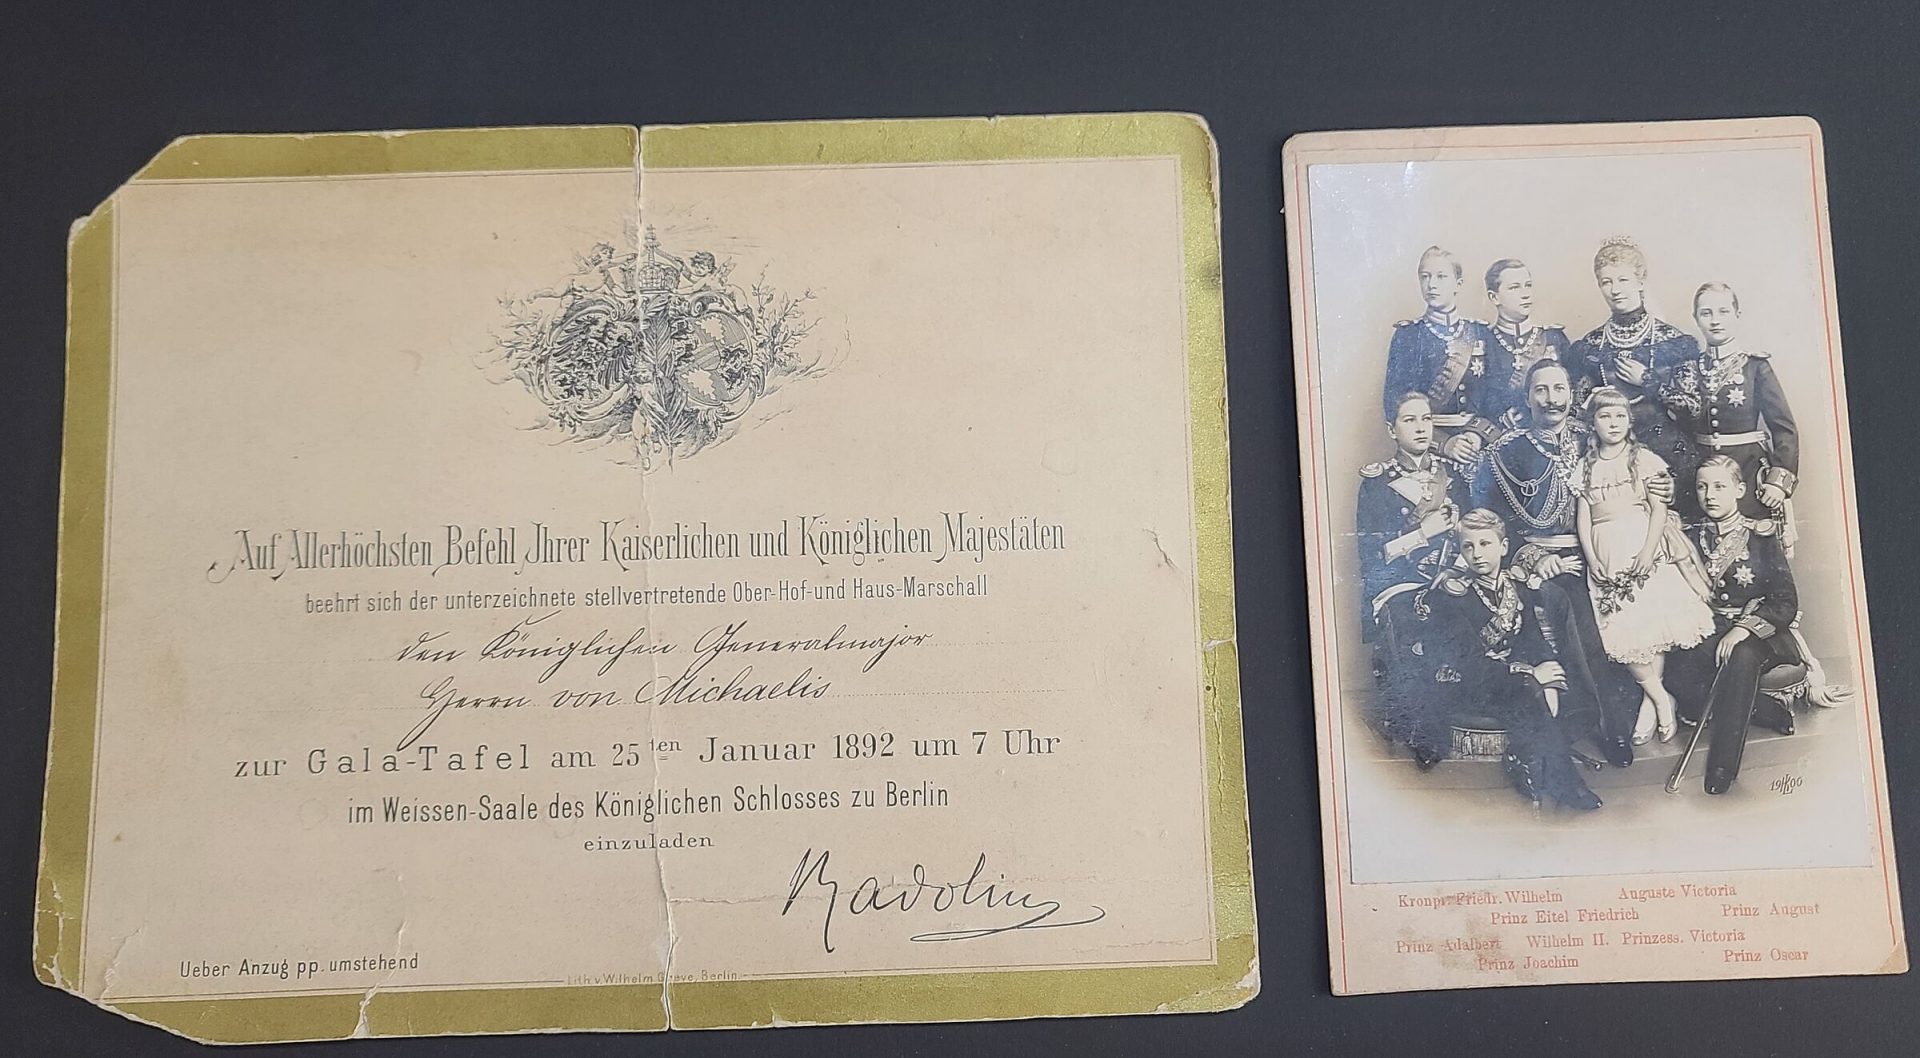 Auf Allerhöchsten Befehl Ihrer Kaiserlichen und Königlichen Majestäten
beehrt sich der unterzeichnete stellvertretende Ober-Hof-und Haus-Marschall
den Königlichen Generalmajor
Herrn von Michaelis
zur Gala-Tafel am 25ten Januar 1892 um 7 Uhr
im Weissen-Saale des Königlichen Schlosses zu Berlin
einzuladen
Radolin
Ueber Anzug pp. umstehend
Lith. v. Wilhelm Greve, Berlin.
1900
Kronpr. Friedr. Wilhelm Auguste Victoria
Prinz Eitel Friedrich Prinz August
Prinz Adalbert Wilhelm II. Prinzess. Victoria
Prinz Joachim Prinz Oscar